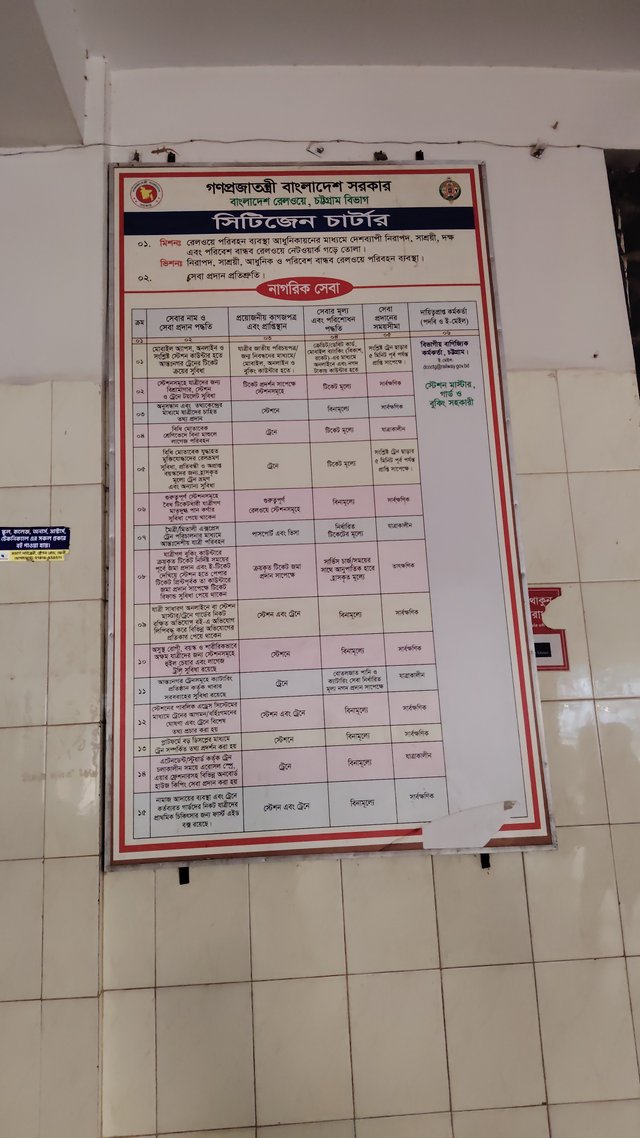 গণপ্রজাতন্ত্রী বাংলাদেশ সরকার
বাংলাদেশ রেলওয়ে, চট্টগ্রাম বিভাগ
সিটিজেন চার্টার
০১. মিশনঃ রেলওয়ে পরিবহন ব্যবস্থা আধুনিকায়নের মাধ্যমে দেশব্যাপী নিরাপদ, সাশ্রয়ী, দক্ষ
এবং পরিবেশ বান্ধব রেলওয়ে নেটওয়ার্ক গড়ে তোলা।
ভিশনঃ নিরাপদ, সাশ্রয়ী, আধুনিক ও পরিবেশ বান্ধব রেলওয়ে পরিবহন ব্যবস্থা।
০২. সেবা প্রদান প্রতিশ্রুতি।
নাগরিক সেবা
ক্রম
সেবার নাম ও
সেবা প্রদান পদ্ধতি
প্রয়োজনীয় কাগজপত্র
এবং প্রাপ্তিস্থান
সেবার মূল্য
এবং পরিশোধন
পদ্ধতি
সেবা
প্রদানের
সময়সীমা
দায়িত্বপ্রাপ্ত কর্মকর্তা
(পদবি ও ই-মেইল)
০১ ০২ ০৩ ০৪ ০৫ ০৬
০১
মোবাইল অ্যাপস, অনলাইন ও
সংশ্লিষ্ট স্টেশন কাউন্টার হতে
আন্তঃনগর ট্রেনের টিকেট
ক্রয়ের সুবিধা
যাত্রীর জাতীয় পরিচয়পত্র/
জন্ম নিবন্ধনের মাধ্যমে/
মোবাইল, অনলাইন ও
বুকিং কাউন্টার হতে।
ক্রেডিট/ডেবিট কার্ড,
মোবাইল ব্যাংকিং (বিকাশ,
রকেট) এর মাধ্যমে
অনলাইনে এবং নগদ
টাকায় কাউন্টার হতে
সংশ্লিষ্ট ট্রেন ছাড়ার
৫ মিনিট পূর্ব পর্যন্ত
প্রাপ্তি সাপেক্ষে।
বিভাগীয় বাণিজ্যিক
কর্মকর্তা, চট্টগ্রাম।
ই- মেইল:
dcoctg@railway.gov.bd
স্টেশন মাস্টার,
গার্ড ও
বুকিং সহকারী
০২
স্টেশনসমূহে যাত্রীদের জন্য
বিশ্রামাগার, স্টেশন
ও ট্রেনে টয়লেট সুবিধা
টিকেট প্রদর্শন সাপেক্ষে
স্টেশনসমূহ
টিকেট মূল্যে
সার্বক্ষণিক
০৩
অনুসন্ধান এবং তথ্যকেন্দ্রের
মাধ্যমে যাত্রীদের চাহিত
তথ্য প্রদান
স্টেশনে
বিনামূল্যে
সার্বক্ষণিক
০৪
বিধি মোতাবেক
শ্রেণিভেদে বিনা মাশুলে
লাগেজ পরিবহন
ট্রেনে
টিকেট মূল্যে
যাত্রাকালীন
০৫
বিধি মোতাবেক যুদ্ধাহত
মুক্তিযোদ্ধাদের রেলভ্রমণ
সুবিধা, প্রতিবন্ধী ও অপ্রাপ্ত
বয়স্কদের জন্য হ্রাসকৃত
মূল্যে ট্রেন ভ্রমণ
এবং অন্যান্য সুবিধা
ট্রেনে
টিকেট মূল্যে
সংশ্লিষ্ট ট্রেন ছাড়ার
৫ মিনিট পূর্ব পর্যন্ত
প্রাপ্তি সাপেক্ষে।
০৬
গুরুত্বপূর্ণ স্টেশনসমূহে
বৈধ টিকেটধারী যাত্রীগণ
মাতৃদুগ্ধ পান কর্ণার
সুবিধা পেয়ে থাকেন
গুরুত্বপূর্ণ
রেলওয়ে স্টেশনসমূহ
বিনামূল্যে
সার্বক্ষণিক
০৭
মৈত্রী/মিতালী এক্সপ্রেস
ট্রেন পরিচালনার মাধ্যমে
আন্তঃদেশীয় যাত্রী পরিবহন
পাসপোর্ট এবং ভিসা
নির্ধারিত
টিকেটের মূল্যে
যাত্রাকালীন
০৮
যাত্রীগণ বুকিং কাউন্টারে
ক্রয়কৃত টিকেট নির্দিষ্ট সময়ের
পূর্বে জমা প্রদান এবং ই-টিকেট
দেখিয়ে স্টেশন হতে পেপার
টিকেট প্রিন্টপূর্বক তা কাউন্টারে
জমা প্রদান সাপেক্ষে টিকেট
রিফান্ড সুবিধা পেয়ে থাকেন
ক্রয়কৃত টিকেট জমা
প্রদান সাপেক্ষে
সার্ভিস চার্জ/সময়ের
সাথে আনুপাতিক হারে
হ্রাসকৃত মূল্যে
তাৎক্ষণিক
০৯
যাত্রী সাধারণ অনলাইনে বা স্টেশন
মাস্টার/ট্রেনে গার্ডের নিকট
রক্ষিত অভিযোগ বই-এ অভিযোগ
লিপিবদ্ধ করে বিভিন্ন অভিযোগের
প্রতিকার পেয়ে থাকেন
স্টেশন এবং ট্রেনে
বিনামূল্যে
সার্বক্ষণিক
১০
অসুস্থ রোগী, বয়স্ক ও শারীরিকভাবে
অক্ষম যাত্রীদের জন্য স্টেশনসমূহে
হুইল চেয়ার এবং লাগেজ
ট্রলি সুবিধা রয়েছে
স্টেশনে
বিনামূল্যে
সার্বক্ষণিক
১১
আন্তঃনগর ট্রেনসমূহে ক্যাটারিং
প্রতিষ্ঠান কর্তৃক খাবার
সরবরাহের সুবিধা রয়েছে।
ট্রেনে
বোতলজাত পানি ও
ক্যাটারিং সেবা নির্ধারিত
মূল্য নগদ প্রদান সাপেক্ষে
যাত্রাকালীন
১২
স্টেশনের পাবলিক এড্রেস সিস্টেমের
মাধ্যমে ট্রেনের আগমন/বহির্গমনের
ঘোষণা এবং ট্রেনে বিশেষ
তথ্য প্রচার করা হয়
স্টেশন এবং ট্রেনে
বিনামূল্যে
সার্বক্ষণিক
১৩
প্লাটফর্মে বড় ডিসপ্লের মাধ্যমে
ট্রেন সম্পর্কিত তথ্য প্রদর্শন করা হয়
স্টেশনে
বিনামূল্যে
সার্বক্ষণিক
১৪
এটেনডেন্ট/স্টুয়ার্ড কর্তৃক ট্রেন
চলাকালীন সময়ে এরোসল স্প্রে,
এয়ার ফ্রেশনারসহ বিভিন্ন অনবোর্ড
হাউজ কিপিং সেবা প্রদান করা হয়
ট্রেনে
বিনামূল্যে
যাত্রাকালীন
১৫
নামাজ আদায়ের ব্যবস্থা এবং ট্রেনে
কর্তব্যরত গার্ডদের নিকট যাত্রীদের
প্রাথমিক চিকিৎসার জন্য ফার্স্ট এইড
বক্স রয়েছে।
স্টেশন এবং ট্রেনে
বিনামূল্যে
সার্বক্ষণিক
স্কুল, কলেজ, অনার্স, মাস্টার্স,
টেকনিক্যাল এর সকল প্রকার
বই পাওয়া যায়।